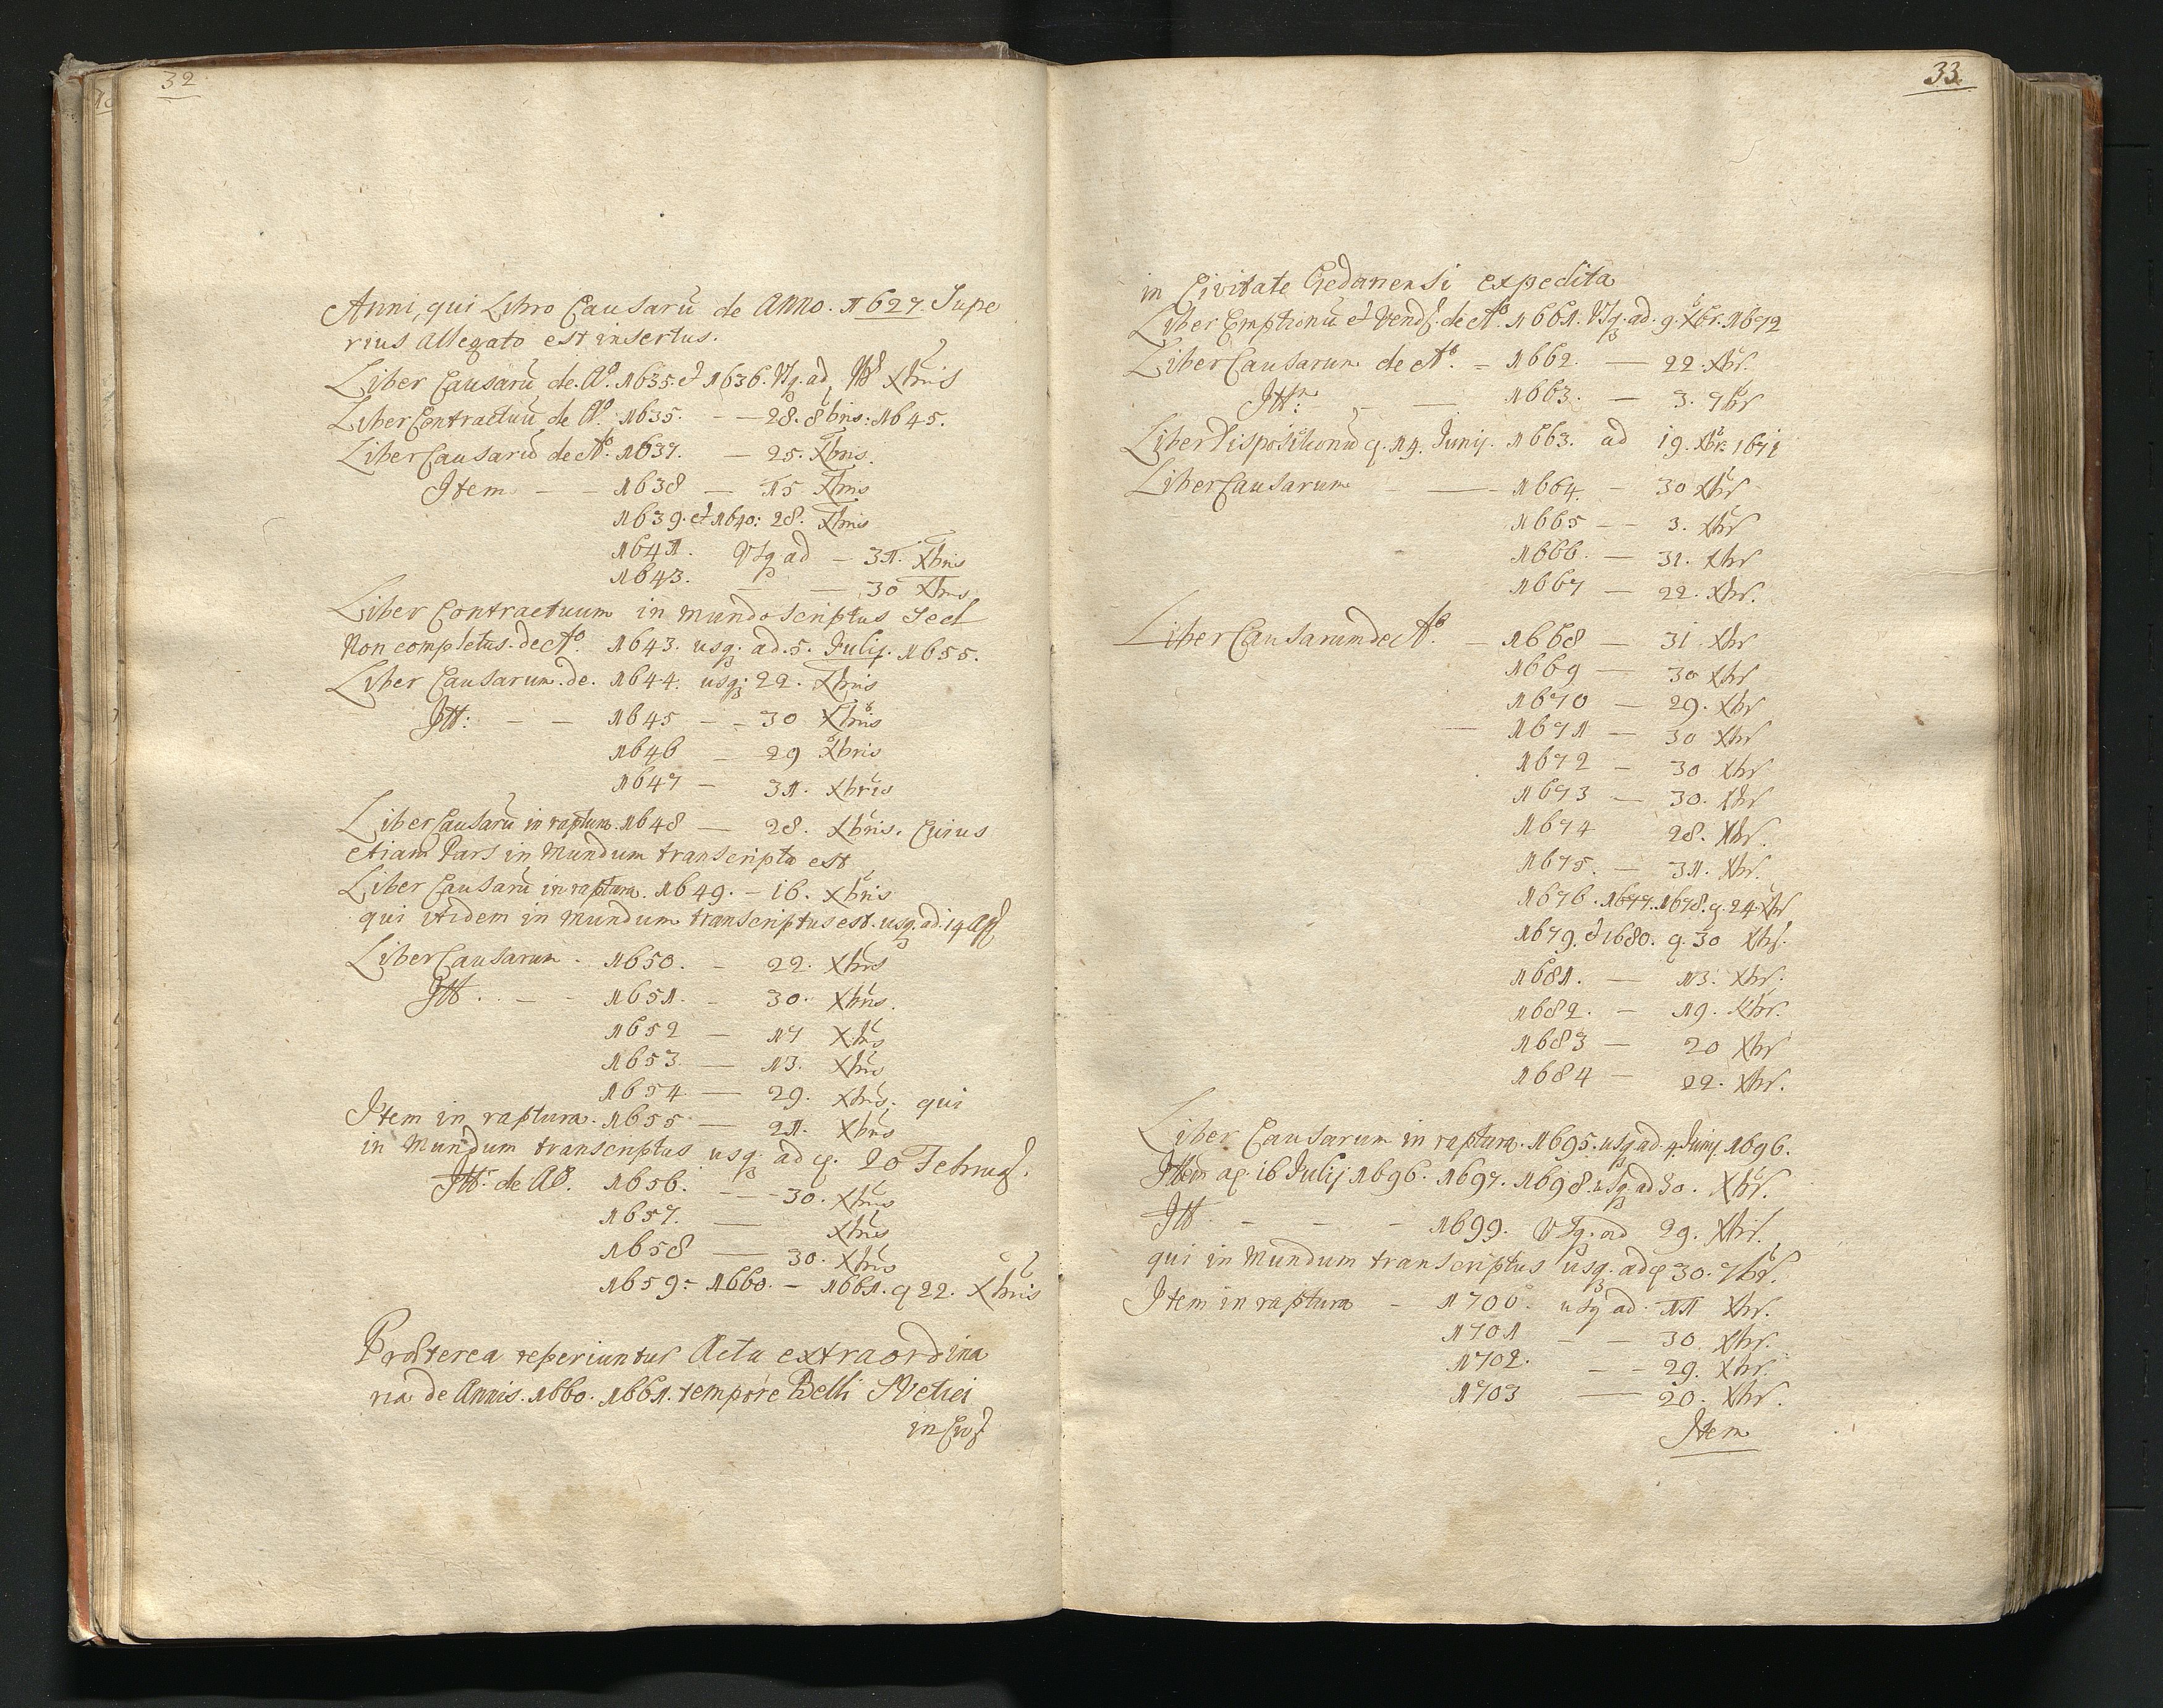 32
Anni, qui Libro Causarũ de Anno. 1627. Supe
rius Allegato est insertus.
Liber Causarũ de. Aº. 1635. et 1636. Usq. ad Xbris
Liber Contractuũ de Aº. 1635. — 28. 8bris: 1645.
Liber Causarũ de Aº. 1637. — 25. Xbris.
Item — — 1638 — 15. Xbris
1639. et 1640: 28. Xbris
1641. Usq ad — 31. Xbris
1643. — — 30 Xbris
Liber Contractuum in mundo scriptus sed
Non completus. de Aº. 1643. usq. ad. 5. Julij. 1655.
Liber Causarum. de. 1644. usq; 22. Xbris
Itt: — — 1645 — — 30 Xbris
1646 — 29 Xbris
1647 — 31. Xbris
Liber Causarũ in raptura. 1648 — 28. Xbris. Cuius
etiam Pars in Mundum transcripta est
Liber Causarũ in raptura. 1649. — 16. Xbris
qui itidem in mundum transcriptus est. usq. ad. 14 Apr
Liber Causarum. 1650. — 22. Xbris
Itt. . — — 1651. — 30. Xbris.
1652 — 17 Xbris
1653. — 13. Xbris
1654 — 29. Xbris; qui
Item in raptura. 1655 — 21. Xbris
in Mundum transcriptus usq. ad q. 20 Februar.
Itt. de Aº. 1656. — — 30. Xbris
1657. — Xbris
1658 — 30. Xbris
1659 - 1660. — 1661. q 22. Xbris
Præterea reperiuntur Acta extraordina
ria de Annis. 1660. 1661. tempore Belli Svetici
in Civ
33.
in Civitate Gedanensi expedita
Liber Emptionũ et Vend. de Aº. 1661. Usq. ad. 9. Xbr. 1672
Liber Causarum de Aº. — 1662. — 22. Xbr.
Itt. — — 1663. — 3. 7br
Liber Dispositionũ q. 14. Junij. 1663. ad 19. Xbr. 1671
Liber Causarum — — 1664. — 30 Xbr
1665 — — 3. Xbr
1666. — 31. Xbr
1667 — 22. Xbr.
Liber Causarum de Aº. — 1668 — 31 Xbr
1669 — 30 Xbr
1670 — 29. Xbr
1671 — 30 Xbr
1672 — 30 Xbr
1673 — 30. Xbr
1674 28. Xbr.
1675. — 31. Xbr.
1676. 1677. 1678. q. 24. Xbr
1679. et 1680. q. 30 Xbr.
1681. — 13. Xbr.
1682. — 19. Xbr.
1683 — 20 Xbr
1684 — 22. Xbr.
Liber Causarum in raptura. 1695. usq. ad. 4. Junij. 1696.
Item aq. 16 Julij 1696. 1697. 1698. usq. ad 30. Xbr.
Itt. — — — 1699. Usq. ad 29. Xbr.
qui in Mundum transcriptus usq. ad q 30. 7br.
Item in raptura — 1700. usq ad. 11 Xbr.
1701 — — 30. Xbr.
1702. — — 29. Xbr.
1703 — 20. Xbr.
Item